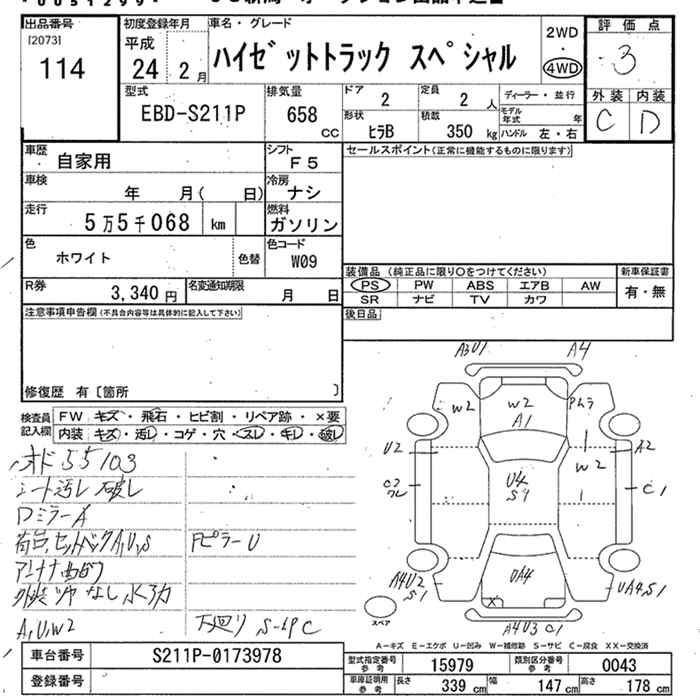 出品番号
[2073]
114
初度登録年月
平成
24 2 月
車名・グレード
ハイゼットトラック スペシャル
2WD
・
4WD
評価点
3
外装 内装
C D
型式
EBD-S211P
排気量
658 CC
ドア
2
定員
2 人
形状
ヒラB
積載
350 kg
ディーラー・並行
モデル年式 年
ハンドル 左・右
車歴
自家用
シフト
F5
セールスポイント(正常に機能するものに限ります)
車検
年 月( 日)
冷房
ナシ
走行
5万5千068 km
燃料
ガソリン
色
ホワイト
色替
色コード
W09
装備品 (純正品に限り○をつけてください)
新車保証書
PS PW ABS エアB AW
有・無
SR ナビ TV カワ
R券
3,340 円
名変通知期限
月 日
後日品
注意事項申告欄(不具合内容等は具体的に記入して下さい)
修復歴 有〔箇所 〕
検査員記入欄
FW キズ・飛石・ヒビ割・リペア跡・×要
内装 キズ・汚レ・コゲ・穴・スレ・キレ・破レ
オド 55103
シート汚レ 破レ
Dミラー A
荷台、セットバックA,U,S
Fピラー U
アンテナ曲がり
外装ツヤなし 水アカ
A,U,W2
下廻り S-ヒPC
A3U1
A4
W2
W2
A1
U2
A2
W2
C1
U4
S1
UA4
A4U2
S1
UA4,S1
A4U3 C1
スペア
A-キズ E-エクボ U-凹み W-補修跡 S-サビ C-腐食 XX-交換済
車台番号
S211P-0173978
登録番号
型式指定番号 参考
15979
類別区分番号 参考
0043
車庫証明用 参考
長さ 339 cm 幅 147 cm 高さ 178 cm